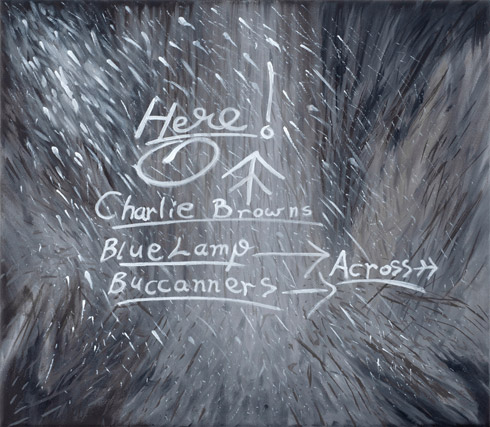 Here!
Charlie Browns
Blue Lamp
Across
Buccanners